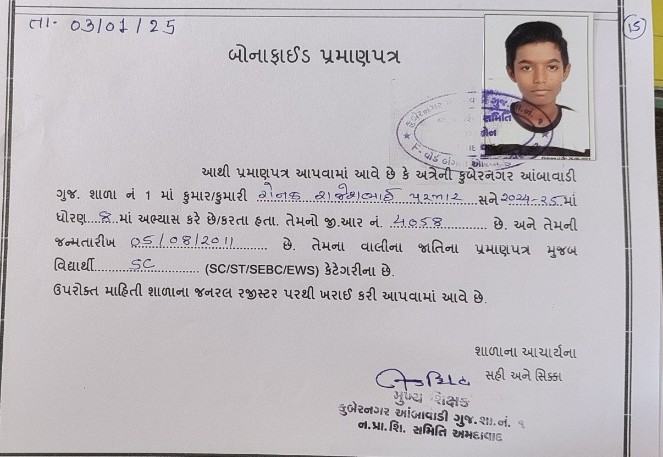 તા- 03/01/25
15
બોનાફાઈડ પ્રમાણપત્ર
કુબેરનગર ગુજ. સમિતિ
આથી પ્રમાણપત્ર આપવામાં આવે છે કે અત્રેની કુબેરનગર આંબાવાડી
ગુજ. શાળા નં 1 માં કુમાર/કુમારી રોનક રાજેશભાઈ પરમાર સને 2024-25 માં
ધોરણ 8 માં અભ્યાસ કરે છે/કરતા હતા. તેમનો જી.આર નં. 4058 છે. અને તેમની
જન્મતારીખ 05/08/2011 છે. તેમના વાલીના જાતિના પ્રમાણપત્ર મુજબ
વિદ્યાર્થી SC (SC/ST/SEBC/EWS) કેટેગરીના છે.
ઉપરોક્ત માહિતી શાળાના જનરલ રજીસ્ટર પરથી ખરાઈ કરી આપવામાં આવે છે.
શાળાના આચાર્યના
સહી અને સિક્કા
મુખ્ય શિક્ષક
કુબેરનગર આંબાવાડી ગુજ.શા.નં. ૧
ન.પ્રા.શિ. સમિતિ અમદાવાદ